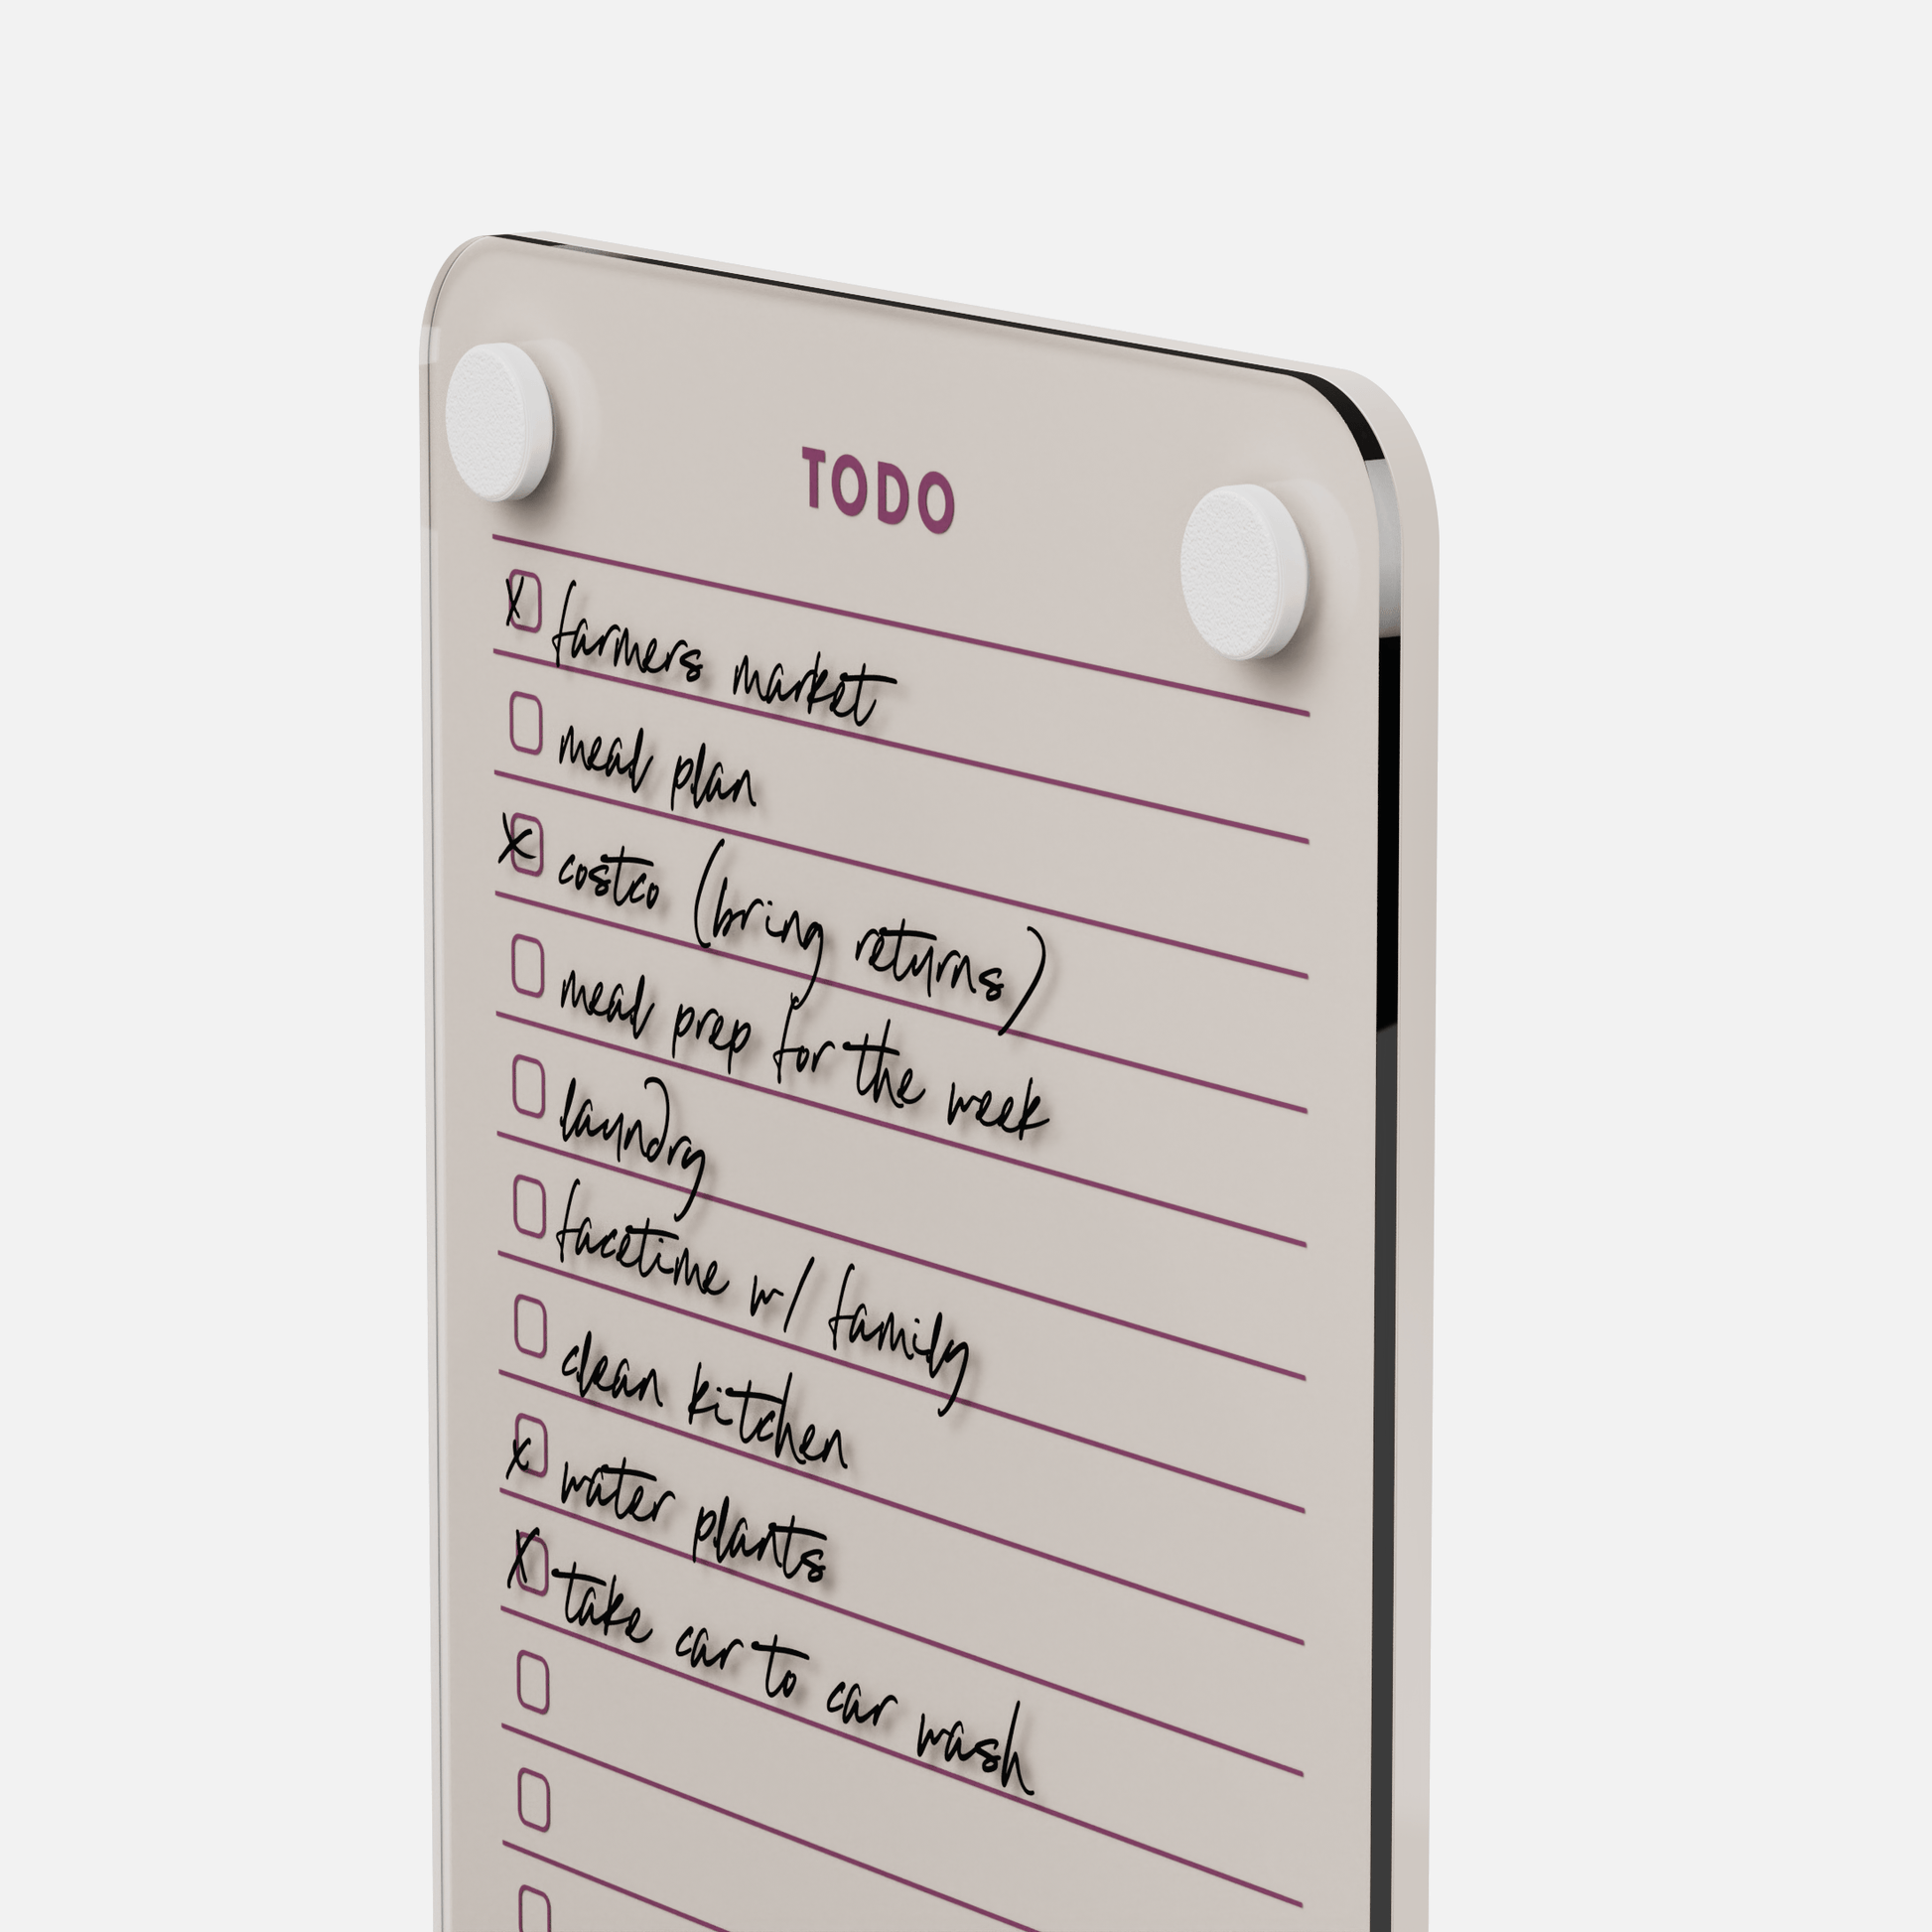 TODO
x farmers market
meal plan
x costco (bring returns)
meal prep for the week
laundry
facetime w/ family
clean kitchen
x water plants
x take car to car wash